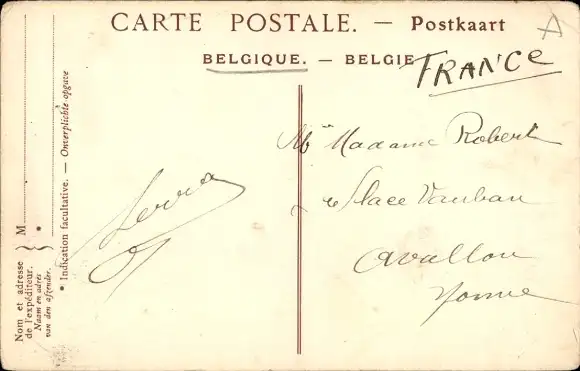 CARTE POSTALE. — Postkaart
A
BELGIQUE. — BELGIE
FRANCE
Madame Robert
Place Vauban
Avallon
Yonne
M
Nom et adresse
de l'expéditeur.
Naam en adres
van den afzender.
* Indication facultative. — Onverplichte opgave